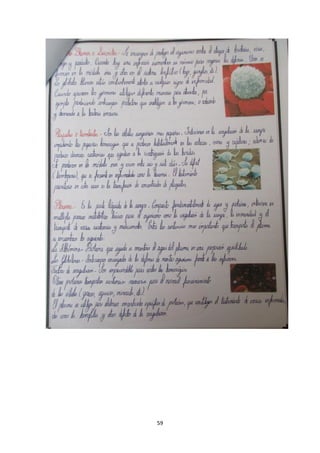 Blancos o Leucocitos.- Se encargan de proteger el organismo contra el ataque de bacterias, virus,
hongos y parásitos. Cuando hay una infección aumentan su número para mejorar las defensas. Unos se
forman en la médula ósea y otros en el sistema linfático (bazo, ganglios, etc).
Los glóbulos blancos están constantemente alerta a cualquier signo de enfermedad.
Cuando aparecen los gérmenes utilizan diferentes maneras para atacarlos, por
ejemplo produciendo anticuerpos protectores que inutilizan a los gérmenes, o rodeando
y devorando a las bacterias
Plaquetas o trombocitos.- Son las células sanguíneas más pequeñas. Intervienen en la coagulación de la sangre
impidiendo las pequeñas hemorragias que se producen habitualmente en las arterias, venas y capilares; además de
producir diversas sustancias que ayudan a la cicatrización de las heridas.
Se producen en la médula ósea y viven entre seis y siete días. Su déficit
(trombopenia), que es frecuente en enfermedades como la leucemia. El tratamiento
en estos casos es la transfusión de concentrados de plaquetas.
Plasma.- Es la parte líquida de la sangre. Compuesto fundamentalmente de agua y proteínas, interviene en
múltiples procesos metabólicos básicos para el organismo como la coagulación de la sangre, la inmunidad y el
transporte de varias sustancias y medicamentos. Entre las sustancias más importantes que transporta el plasma
se encuentran las siguientes:
La Albúmina.- Proteína que ayuda a mantener el agua del plasma en una proporción
Las Globulinas.- Anticuerpos encargados de la defensa de nuestro organismo frente a las infecciones.
Factores de coagulación.- Son imprescindibles para evitar las hemorragias.
Otras proteínas transportan sustancias necesarias para el normal funcionamiento
de las células (grasas, azúcares, minerales, etc).
El plasma se utiliza para obtener concentrados específicos de proteínas, que constituyen el tratamiento de varias enfermedades,
como la hemofilia y otros déficits de la coagulación.
59